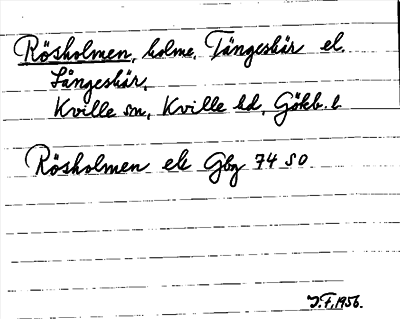 Rösholmen, holme, Tångeskär el.
Långeskär,
Kville sn, Kville hd, Götkb. l.
Rösholmen ek Gbg 74 SO
I.F. 1956.